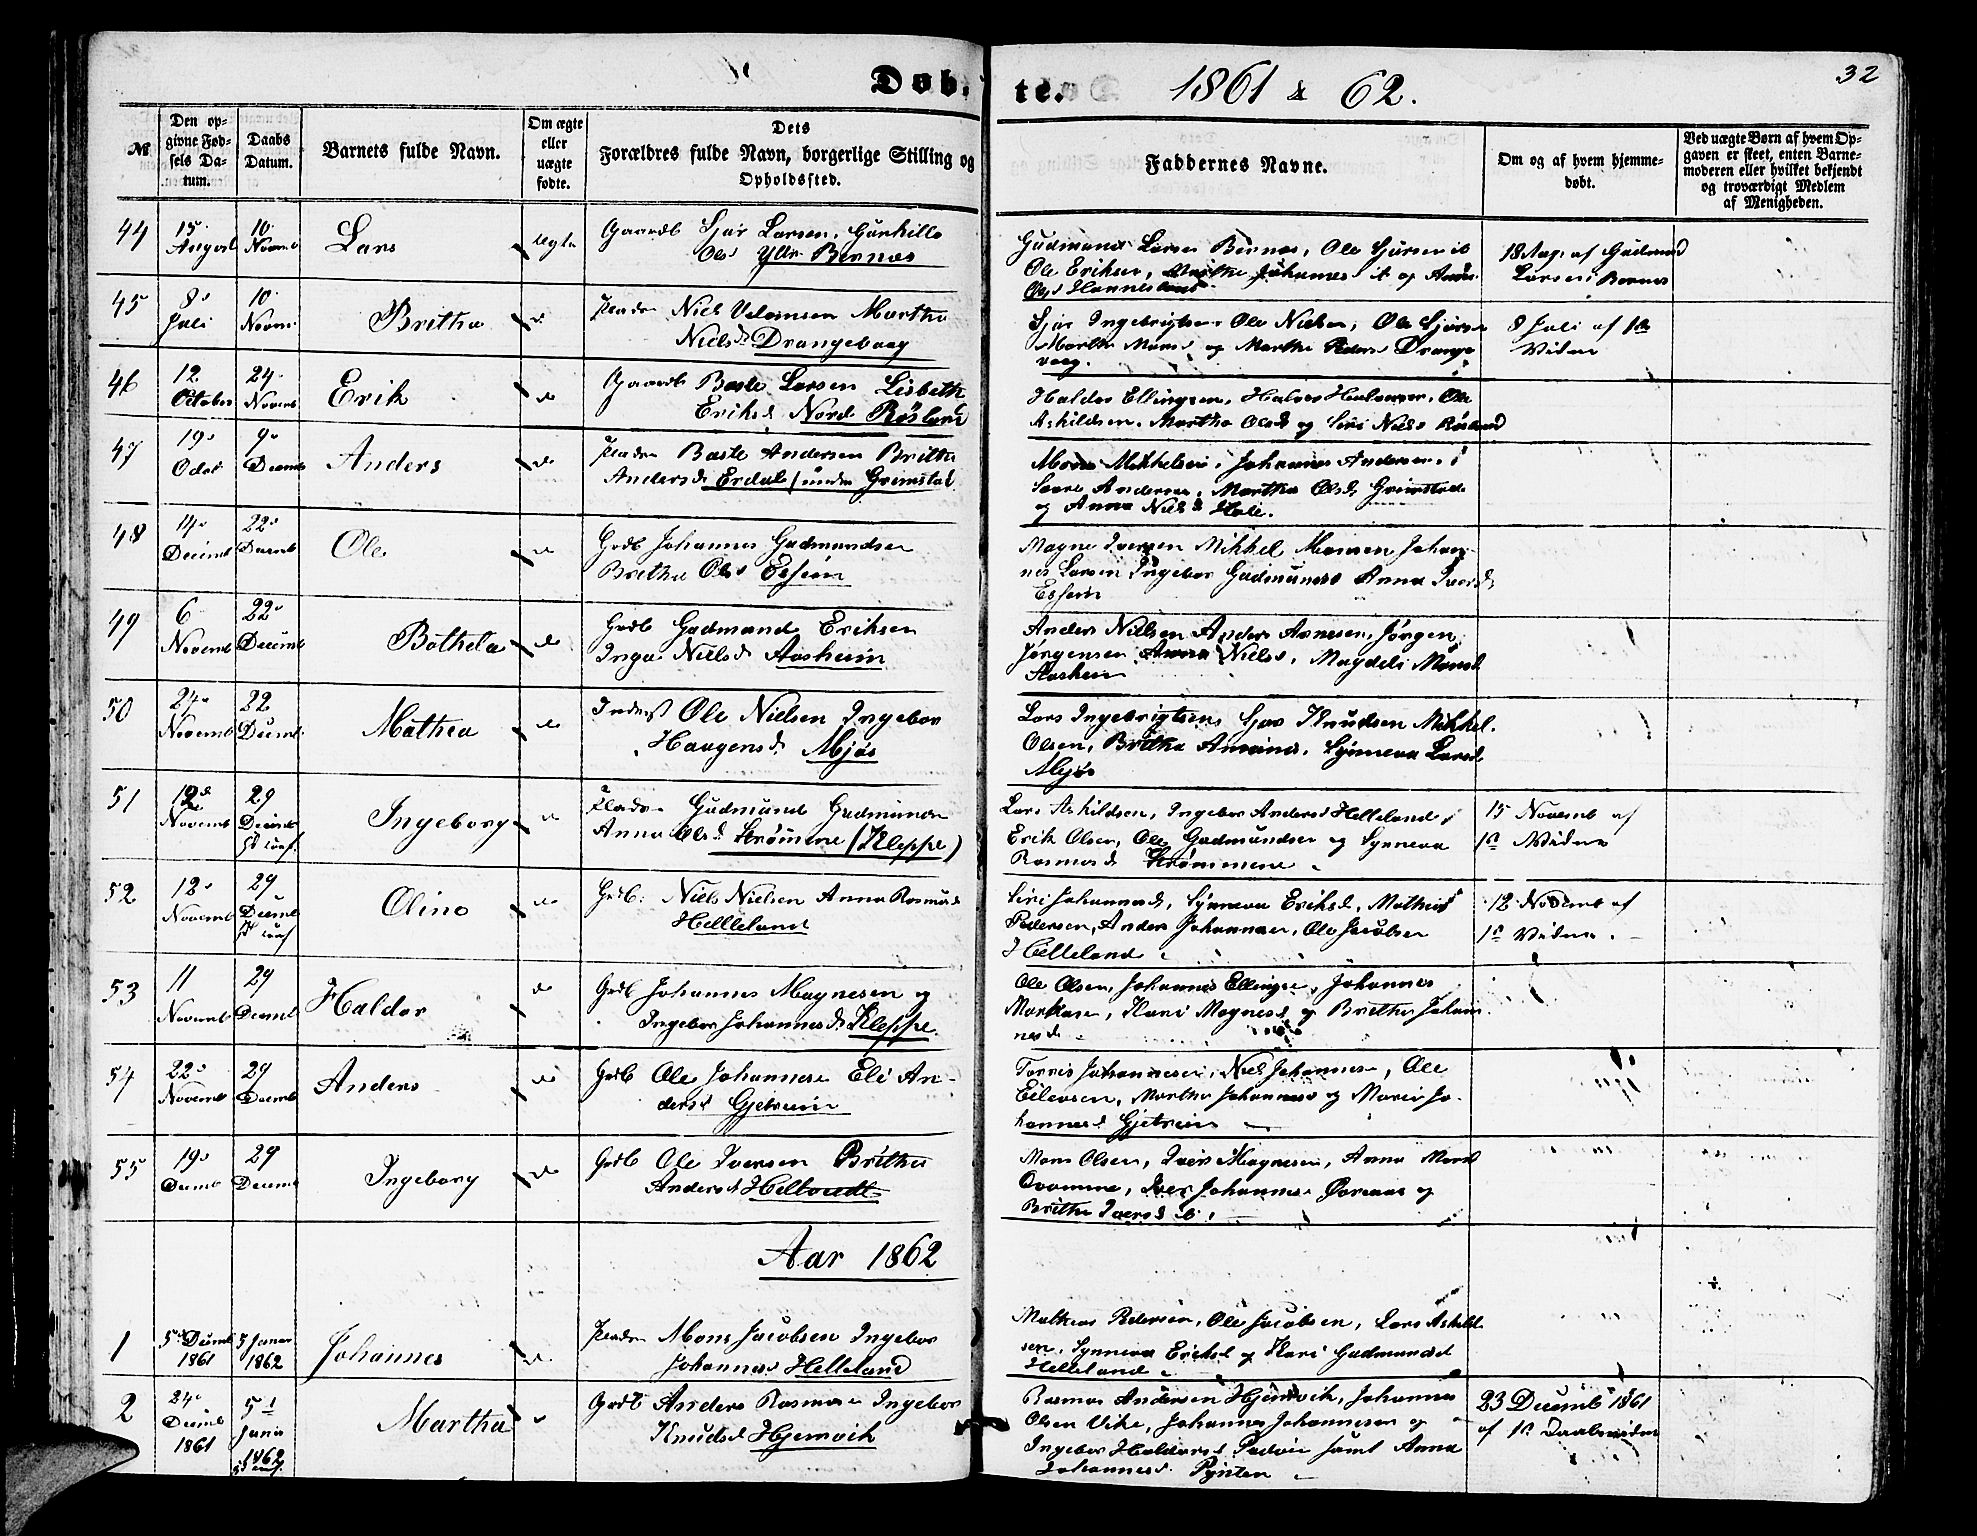 Døb-
te.
1861 & 62.
32
№
Den op-
givne Fød-
sels Da-
tum.
Daabs
Datum.
Barnets fulde Navn.
Om ægte
eller
uægte
fødte.
Dets
Forældres fulde Navn, borgerlige Stilling og
Opholdssted.
Faddernes Navne.
Om og af hvem hjemme-
døbt.
Ved uægte Børn af hvem Op-
gaven er skeet, enten Barne-
moderen eller hvilket bekjendt
og troværdigt Medlem
af Menigheden.
44
15
August
10
Novemb
Lars
Ægte
Gaardb Sjur Larsen, Gunhilde
Ols Yttre Bernæs
Gudmund Larsen Bernæs, Ole Sjursen ib
Ole Eriksen, Johannes ib og
Olsd
18 Aug. af Gudmund
Larsen Bernæs
45
8
Juli
10
Novemb
Britha
do
Niels Martha
Nielsd Drangevaag
Sjur Ingebrigtsen Ole Nielsen, Ole Sjursen
Martha Monsd og Martha Pedersd Drange
vaag.
8 Juli af
Vidne
46
12
October
24
Novemb
Erik
do
Gaardb Baste Larsen Lisbeth
Eriksd Nord Røsland
Haldor Ellingsen, Halvor Halvorsen, Ole
Askildsen, Martha Olsd og Siri Nielsd Røsland
47
19
Octob
9
Decemb
Anders
do
Baste Andersen Britha
Andersd Erdal (under Grimstad
Mons Mikkelsen, Johannes Andersen,
Andersen, Martha Olsd Grimstad
og Anna Nielsd
48
14
Decemb
22
Decemb
Ole
do
Grdb Johannes Gudmundsen
Britha Olsd
Magne Iversen Mikkel Monsen Johan-
nes Larsen Ingebor Gudmundsd Anna Iversd
49
6
Novemb
22
Decemb
Bøtheta
do
Grdb Gudmund Eriksen
Inga Nielsd Aasheim
Anders Nielsen Anders Arnesen, Jørgen
Jørgensen Anna Nielsd, Magdeli Monsd
Aasheim
50
24
Novemb
22
Decemb
Mathea
do
Inderst Ole Nielsen Ingebor
Haagensd Mjøs
Lars Ingebrigtsen, Sjur Knudsen Mikkel
Olsen, Britha Amundsd, Synneva Larsd
Mjøs
51
12
Novemb
29
Decemb
Ingeborg
do
Gudmund Gudmundsen
Anna Olsd Strømme (Kleppe)
Lars Askildsen, Ingebor Andersd Helleland,
Erik Olsen, Ole Gudmundsen og Synneva
Rasmusd Strømmene
15 Novemb af
Vidne
52
12
Novemb
29
Decemb
Olino
do
Grdb. Niels Nielsen Anna Rasmusd
Helleland
Siri Johannesd, Synneva Eriksd, Mathias
Pedersen, Anders Johannesen, Ole Jacobsen
Helleland
12 Novemb af
Vidne.
53
11
Novemb
29
Decemb
Haldor
do
Grdb Johannes Magnesen og
Ingebor Johannesd Kleppe.
Ole Olsen, Johannes Ellingsen, Johannes
Markusen, Kari Magnesd og Britha Johan-
nesd
54
22
Novemb
29
Decemb
Anders
do
Grdb Ole Johannesen Eli An-
dersd Gjetreim
Torris Johannesen, Niels Johannesen, Ole
Eilevsen, Martha Johannesd og Mari Jo-
hannesd Gjetreim
55
19
Decemb
29
Decemb
Ingeborg
do
Grdb Ole Iversen Britha
Andersd
Mons Olsen, Iver Magnesen, Anna Monsd
Qvamme, Iver Johannesen og
Britha Iversd ib.
Aar 1862
1
5 Decemb
1861
5 Januar
1862
Johannes
do
Mons Jacobsen Ingebor
Johannesd Helleland
Mathias Pedersen, Ole Jacobsen, Lars Askild-
sen, Synneva Eriksd og Kari Gudmundsd
Helleland
2
24
Decemb
1861
5
Januar
1862
Martha
Grdb Anders Rasmusen Ingebor
Knudsd Hjemvik
Rasmus Andersen Hjemvik, Johannes
Olsen Vike, Johannes Johannesen og
Ingebor Haldorsd samt Anna
Johannesd Pynten
23 Decemb 1861
af Daabsvidne